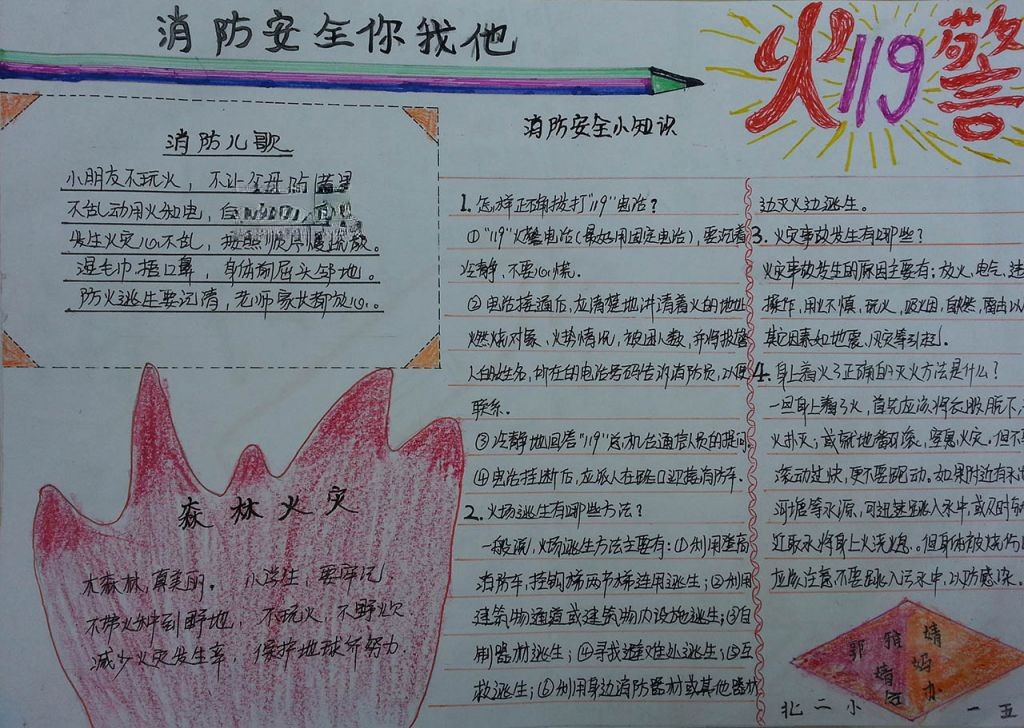 消防安全你我他
火119警
消防儿歌
小朋友不玩火，不让父母防
不乱动用火和电，
发生火灾心不乱，按照顺序
湿毛巾捂口鼻，身体前屈头与地。
防火逃生要记清，老师家长都放心。
森林火灾
木森林，真美丽。小学生，要牢记，
不带火种到野地，不玩火，不野炊
减少火灾发生率，保护地球你努力
消防安全小知识
1. 怎样正确拨打"119"电话？
①"119"火警电话（最好用固定电话），要沉着
冷静，不要心慌。
②电话接通后，应清楚地讲清着火的地址
燃烧对象、火势情况，被困人数，并将报警
人的姓名，所在的电话号码告诉消防员，以便
联系。
③冷静地回答"119"总机台通信人员的提问
④电话挂断后，应派人在路口迎接消防车.
2. 火场逃生有哪些方法？
一般说，火场逃生方法主要有：①利用登高
消防车，挂钩梯两节梯连用逃生；②利用
建筑物通道或建筑物内设施逃生；③自
制器材逃生；④寻找避难处逃生；⑤互
救逃生；⑥利用身边消防器材或其他器材
边灭火边逃生。
3. 火灾事故发生有哪些？
火灾事故发生的原因主要有：放火，电气，违
操作，用火不慎，玩火，吸烟，自然，雷击以
其它因素如地震、风灾等引起.
4. 身上着火了正确的灭火方法是什么？
一旦身上着了火，首先应该将衣服脱下，
火扑灭；或就地翻滚，窒息火灾。但不
滚动过快，更不要跑动。如果附近有水
河塘等水源，可迅速跳入水中，或及时
近取水将身上火浇熄。但身体被烧伤
应该注意不要跳入污水中，以防感染。
郭雅婧
婧妈办
北二小 一五